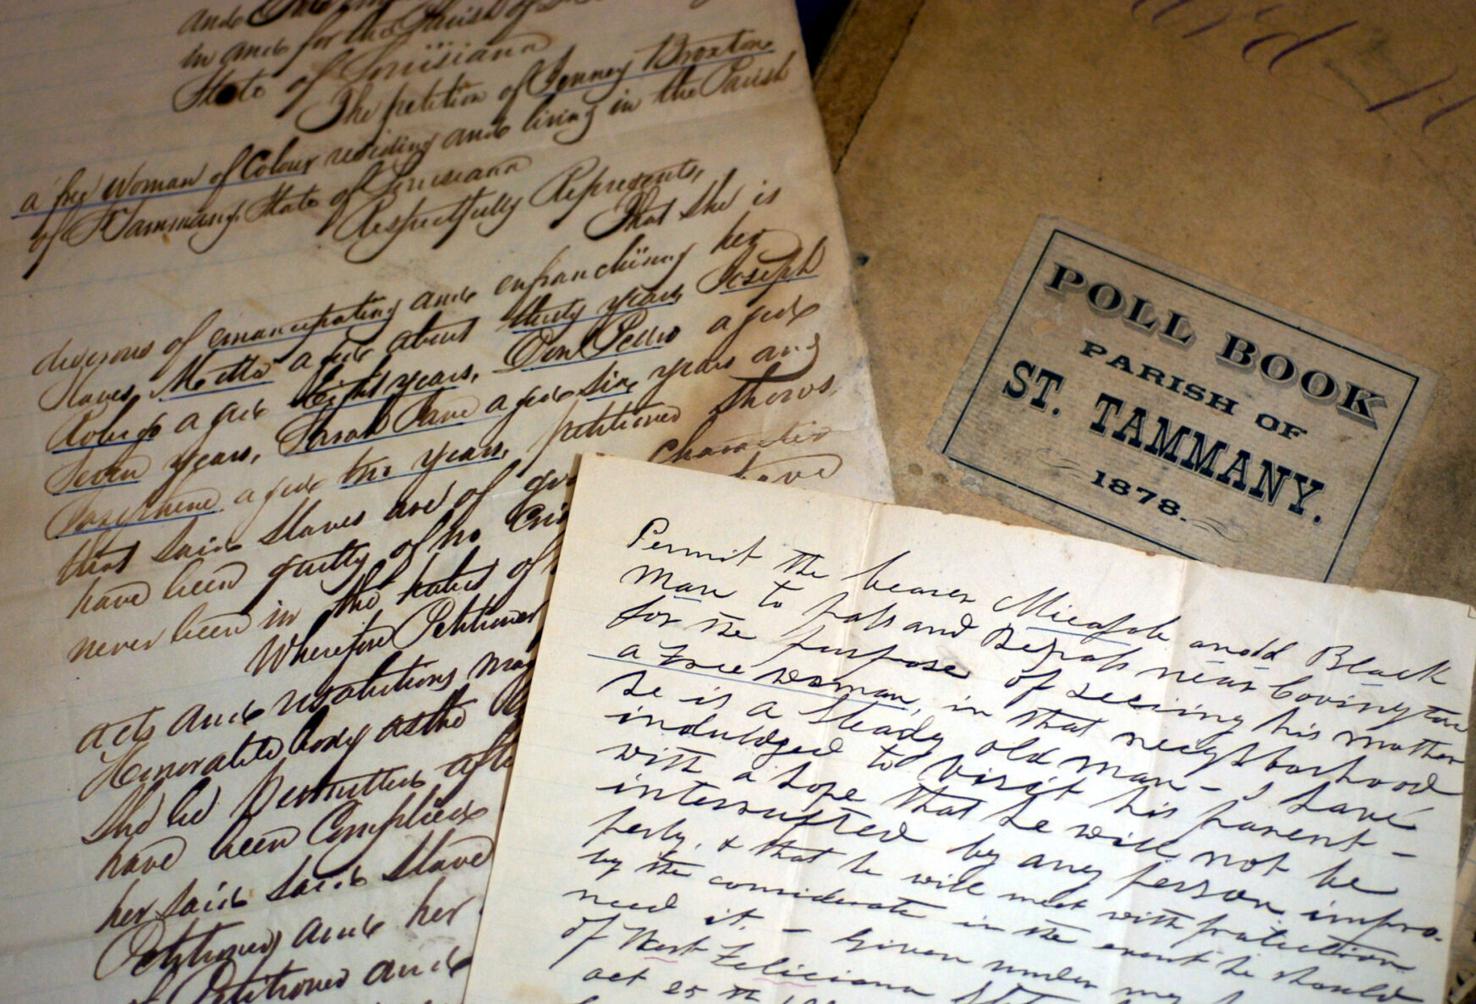 in and for the Parish of
State of Louisiana
The petition of Jenney Broxton
a free Woman of Colour residing and living in the Parish
of St Tammany State of Louisiana
Respectfully Represents,
That She is
desirous of emancipating and enfranchising her
slaves, aged about thirty years Joseph
aged Eight years, Don Pedro aged
Seven years, Sarah Jane aged six years and
Josephine aged two years, petitioner shows
that said Slaves are of good character
have been guilty of no have
never been in the habit of
Wherefore Petitioner
acts and resolutions may
Honorable body as the
She be permitted after
have been Complied
her said Slave
Petitioner and her
of Petitioner and
POLL BOOK
PARISH OF
ST. TAMMANY.
1878.
Permit the bearer an old Black
man to pass and Repass near Covington
for the purpose of seeing his mother
a free woman, in that neighborhood
he is a steady old man - I have
indulged to visit his parent -
with a hope that he will not be
interrupted by any person impro-
perly, & that he will meet with protection
by the considerate in the event he should
need it. - Given under my
of West Feliciana
oct 25th